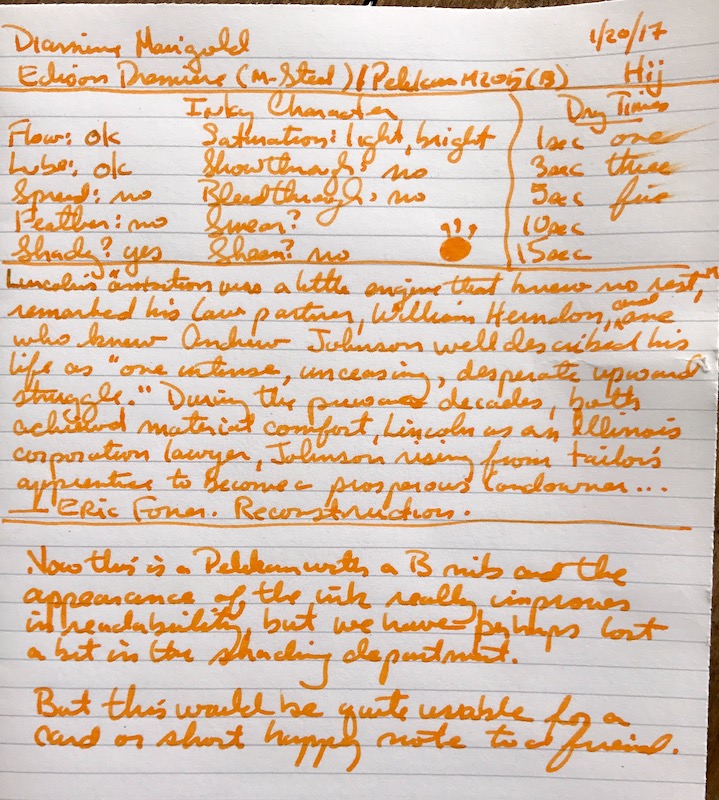 Diamine Marigold 1/20/17
Edison Premiere (M-Steel) / Pelikan M205 (B) Hij
Inky Character Dry Times
Flow: ok Saturation: light, bright 1sec one
Lube: ok Showthrough: no 3sec three
Spread: no Bleedthrough: no 5sec five
Feather: no Smear? 10sec
Shady? yes Sheen? no 15sec
Lincoln's "ambition was a little engine that knew no rest,"
remarked his law partner, William Herndon, and one
who knew Andrew Johnson well described his
life as "one intense, unceasing, desperate upward
struggle." During the prewar decades, both
achieved material comfort, Lincoln as an Illinois
corporation lawyer, Johnson rising from tailor's
apprentice to become a prosperous landowner...
— Eric Foner. Reconstruction.
Now this is a Pelikan with a B nib and the
appearance of the ink really improves
in readability, but we have perhaps lost
a bit in the shading department.
But this would be quite usable for a
card or short happy note to a friend.